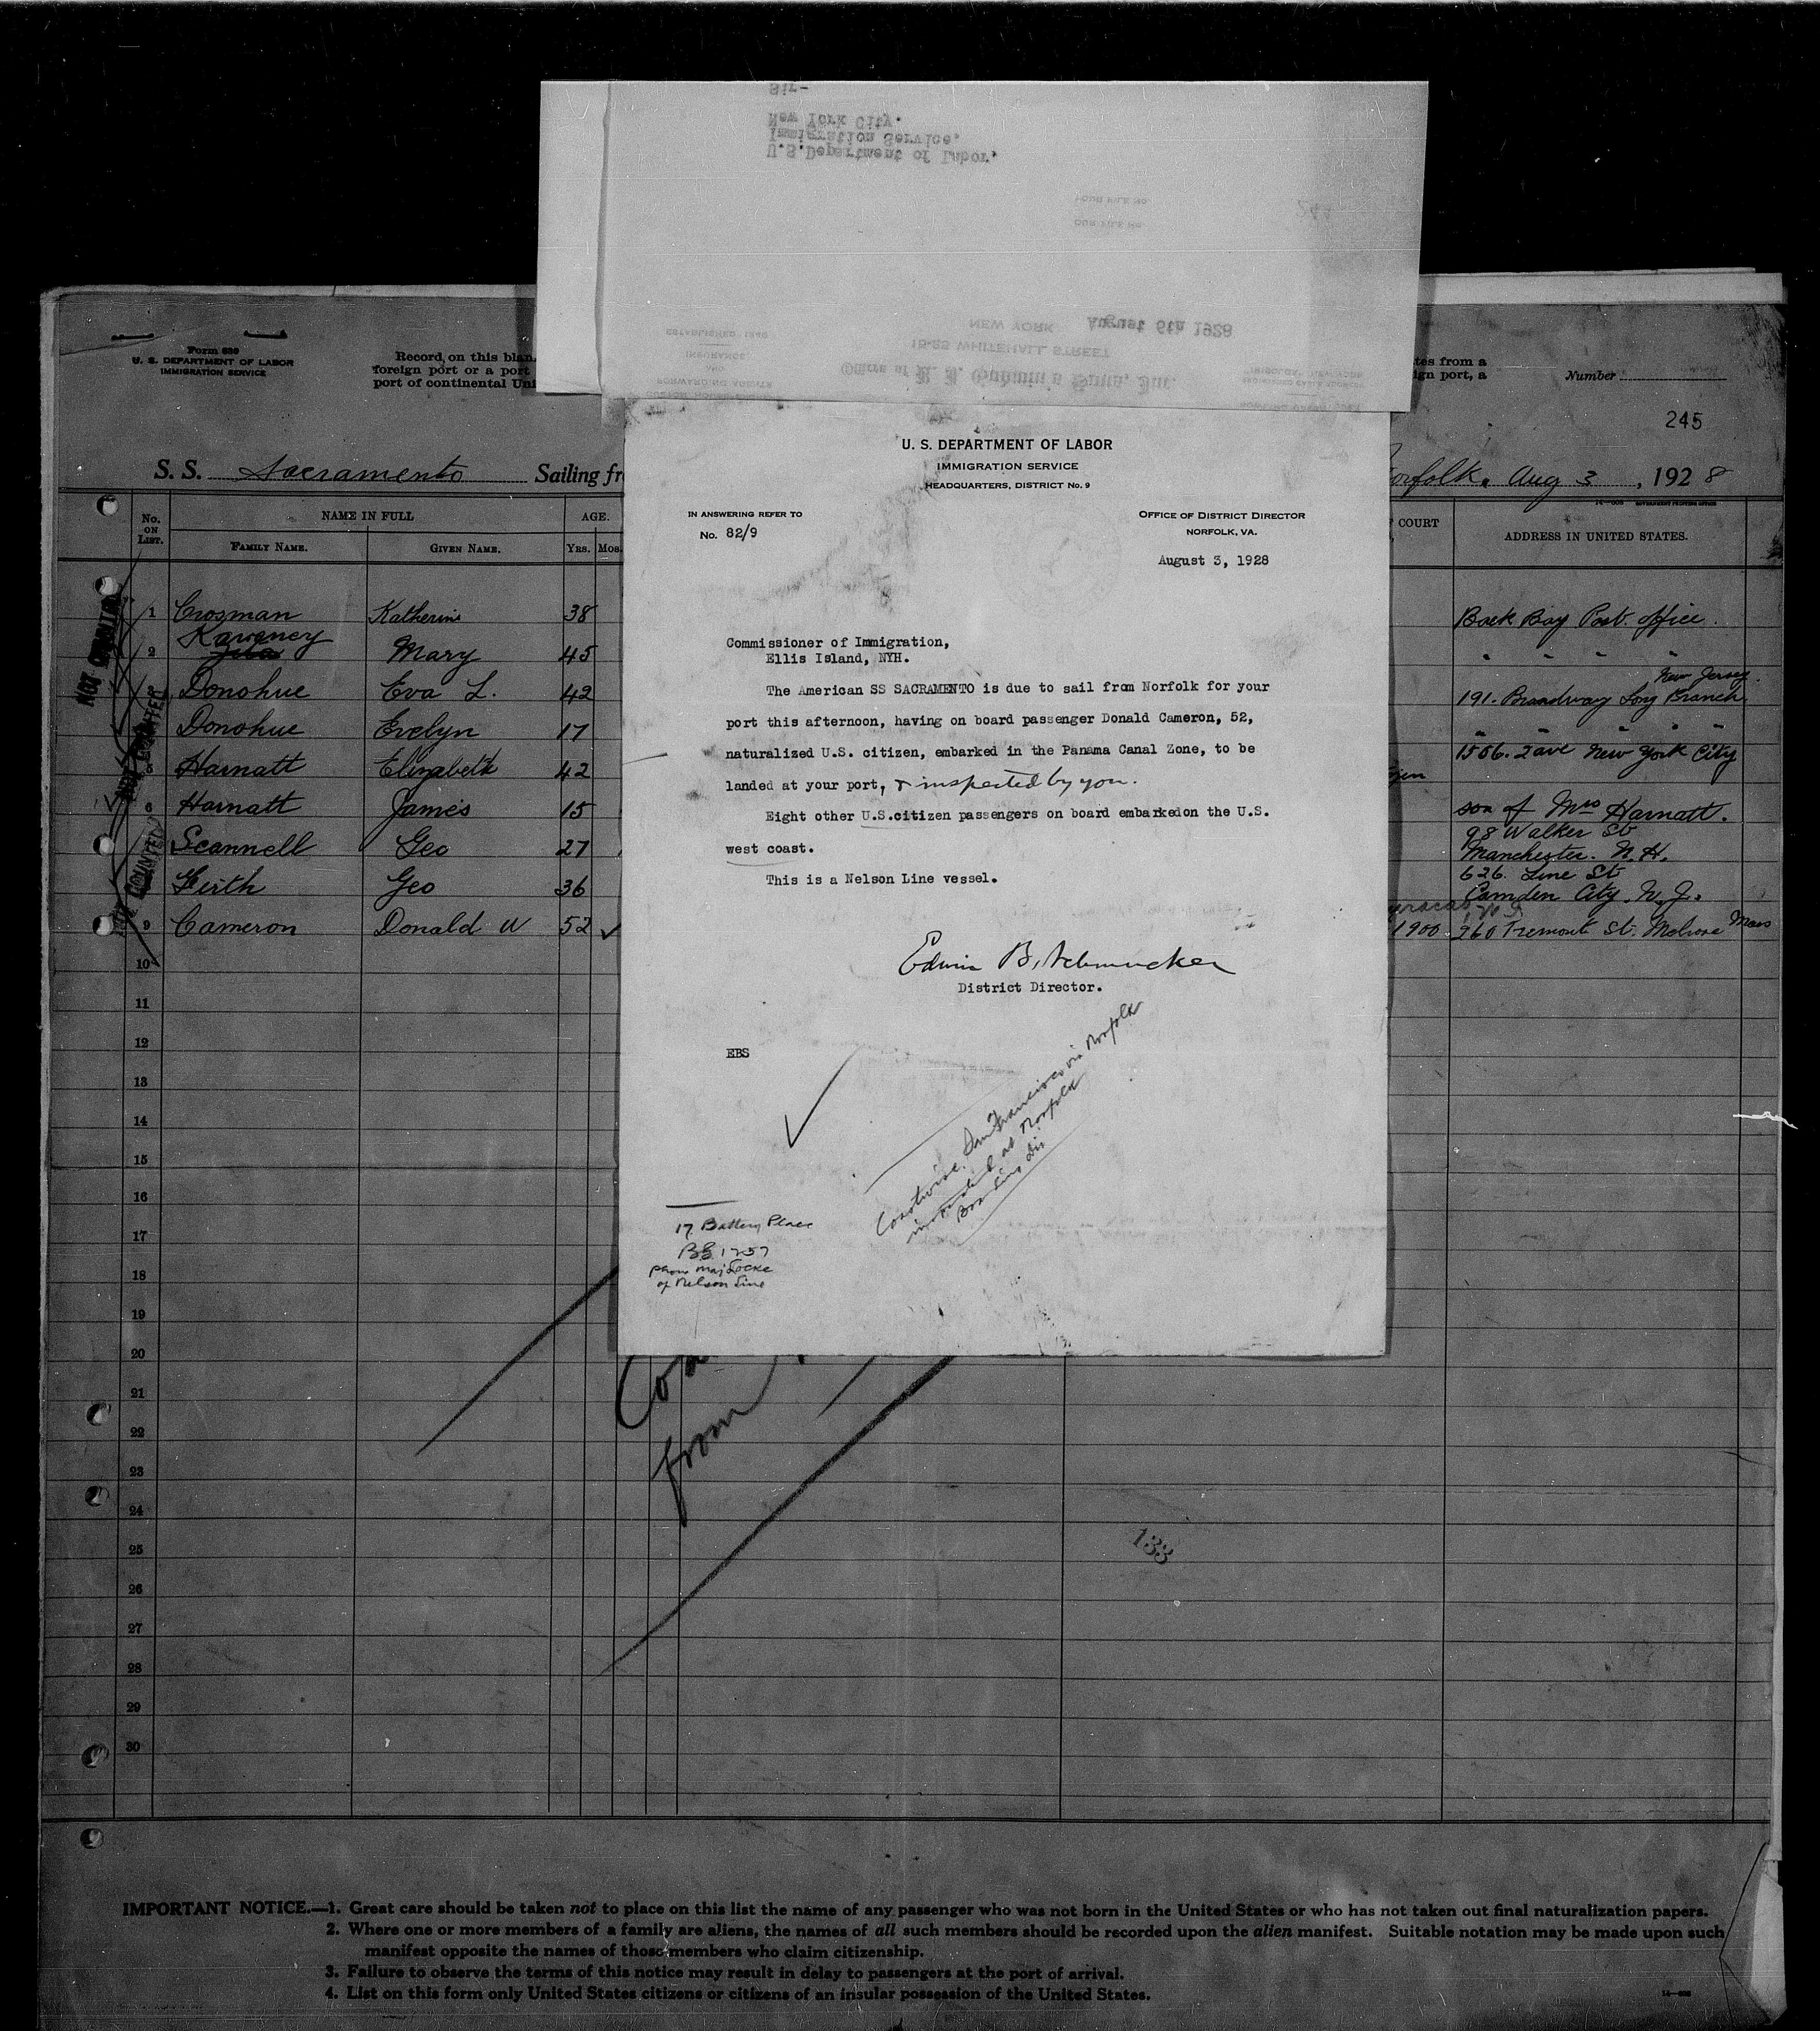 Sir-
New York City.
Immigration Service,
U.S.Department of Labor,
YOUR FILE No.
OUR FILE No.
244
NEW YORK August 6th 1928
15-25 WHITEHALL STREET
ESTABLISHED 1840
INSURANCE
AND
FORWARDING AGENTS
Office of
Form 630
U. S. DEPARTMENT OF LABOR
IMMIGRATION SERVICE
Record on this blan
foreign port or a port
port of continental Uni
tes from a
ign port, a
Number
245
S. S. Sacramento Sailing fr
orfolk, Aug 3, 1928
14—608 GOVERNMENT PRINTING OFFICE
No. ON LIST.
NAME IN FULL
AGE.
COURT
ADDRESS IN UNITED STATES.
FAMILY NAME. GIVEN NAME. YRS. MOS.
1 Crosman Katherine 38 Back Bay Post. office.
Kaweney
2 Mary 45 " " " "
New Jersey.
Donohue Eva L. 42 191. Broadway Long Branch
Donohue Evelyn 17 " " "
Harnatt Elizabeth 42 1506. 2 ave New York City
6 Harnatt James 15 son of Mrs Harnatt.
Scannell Geo 27 98 Walker St
Manchester. N. H.
Firth Geo 36 626. Line St
Camden City. N. J.
9 Cameron Donald W 52 ✓ 1900 960 Tremont St. Melrose Mass
NOT COUNTED
NOT COUNTED
NOT COUNTED
10
11
12
13
14
15
16
17
18
19
20
21
22
23
24
25
26
27
28
29
30
U. S. DEPARTMENT OF LABOR
IMMIGRATION SERVICE
HEADQUARTERS, DISTRICT No. 9
IN ANSWERING REFER TO
No. 82/9
OFFICE OF DISTRICT DIRECTOR
NORFOLK, VA.
August 3, 1928
Commissioner of Immigration,
Ellis Island, NYH.
The American SS SACRAMENTO is due to sail from Norfolk for your
port this afternoon, having on board passenger Donald Cameron, 52,
naturalized U.S. citizen, embarked in the Panama Canal Zone, to be
landed at your port, & inspected by you.
Eight other U.S.citizen passengers on board embarkedon the U.S.
west coast.
This is a Nelson Line vessel.
Edwin B. Schmucker
District Director.
EBS
Coastwise. San Francisco via Norfolk
inspected at Norfolk
Boarding Div
17 Battery Place
BG 1257
phone Maj Locke
of Nelson Line
from
133
IMPORTANT NOTICE.—1. Great care should be taken not to place on this list the name of any passenger who was not born in the United States or who has not taken out final naturalization papers.
2. Where one or more members of a family are aliens, the names of all such members should be recorded upon the alien manifest. Suitable notation may be made upon such
manifest opposite the names of those members who claim citizenship.
3. Failure to observe the terms of this notice may result in delay to passengers at the port of arrival.
4. List on this form only United States citizens or citizens of an insular possession of the United States.